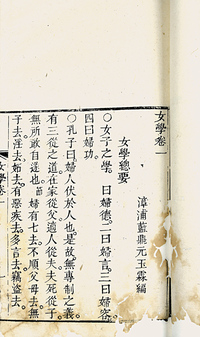 女學卷一
漳浦藍鼎元玉霖編
女學總要
○女子之學一曰婦德二曰婦言三曰婦容
四曰婦功
○孔子曰婦人伏於人也是故無專制之義
有三從之道在家從父適人從夫夫死從子
無所敢自遂也節婦有七去不順父母去無
子去淫去妬去有惡疾去多言去竊盜去
女學卷一